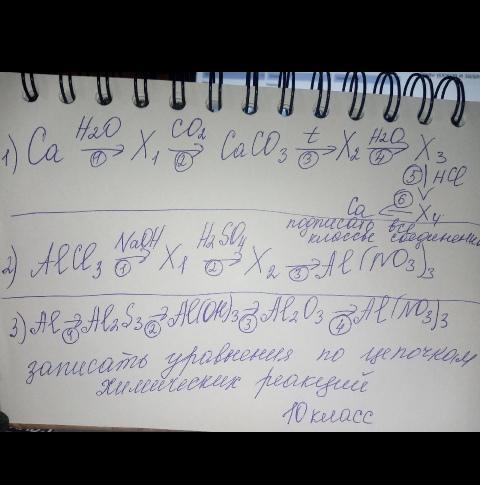 1) Ca H2O → ① X1 CO2 → ② CaCO3 t → ③ X2 H2O → ④ X3
⑤ ↓ HCl
Ca ← ⑥ X4
подписать все
классы соединений
2) AlCl3 NaOH → ① X1 H2SO4 → ② X2 → ③ Al(NO3)3
3) Al → ① Al2S3 → ② Al(OH)3 → ③ Al2O3 → ④ Al(NO3)3
записать уравнения по цепочкам
химических реакций
10 класс